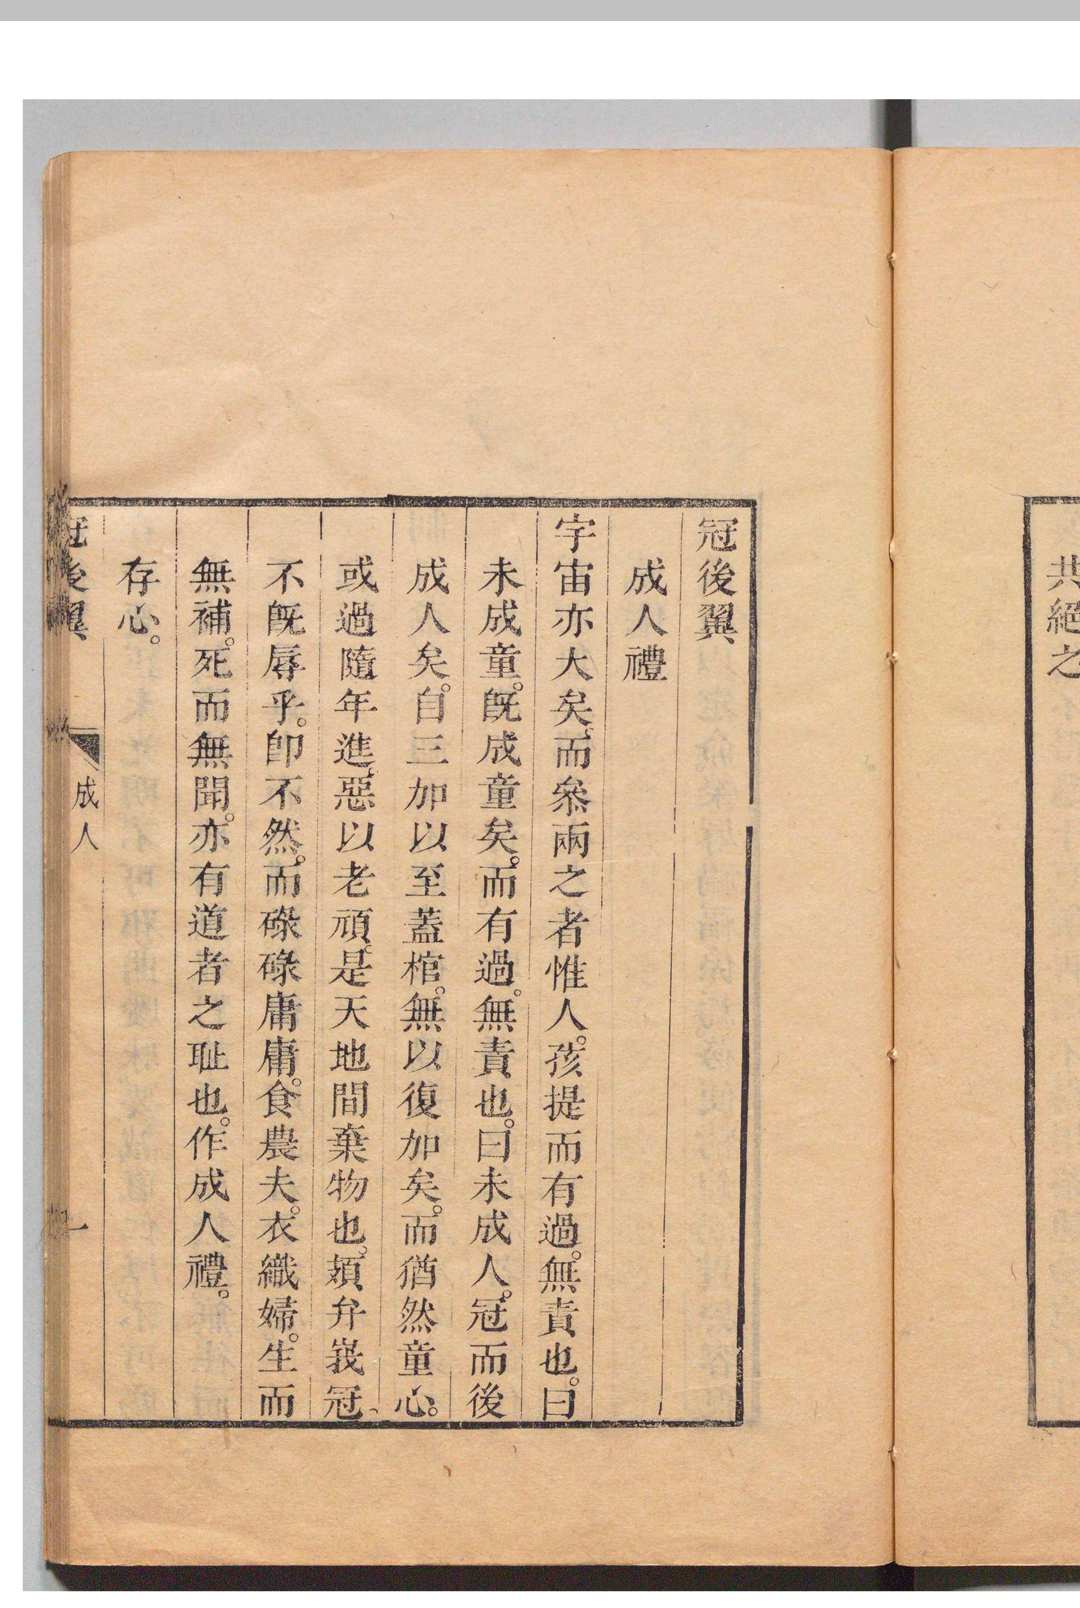 共絕之
冠後翼
成人禮
宇宙亦大矣。而叅兩之者惟人。孩提而有過。無責也。曰
未成童。旣成童矣。而有過。無責也。曰未成人。冠而後
成人矣。自三加以至蓋棺。無以復加矣。而猶然童心。
或過隨年進。惡以老頑。是天地間棄物也。頍弁峩冠、
不旣辱乎。卽不然。而碌碌庸庸。食農夫。衣織婦。生而
無補。死而無聞。亦有道者之耻也。作成人禮。
存心。
冠後翼
成人
一